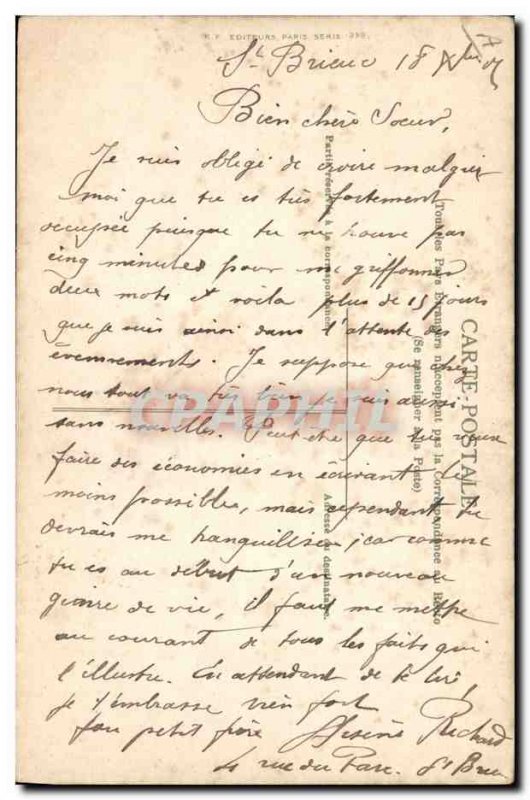 K. F. EDITEURS, PARIS SERIE 299
St Brieuc 18 Xbre
Bien chère Soeur,
Je suis obligé de croire malgré
moi que tu es très fortement
occupée puisque tu ne trouve pas
cinq minutes pour me griffonner
deux mots et voila plus de 15 jours
que je suis ainsi dans l'attente des
évènements. Je suppose que chez
nous tout va très bien je suis aussi
sans nouvelles. Peut-être que tu veux
faire des économies en écrivant le
moins possible, mais cependant tu
devrais me tranquilliser, car comme
tu es au début d'un nouveau
genre de vie, il faut me mettre
au courant de tous les faits qui
l'illustre. En attendant de te lire
je t'embrasse bien fort
Ton petit frère Arsène Richard
4 rue du Parc. St Brieuc
CARTE POSTALE
Tous les Pays Etrangers n'acceptent pas la Correspondance au Recto
(Se renseigner à la Poste)
Partie réservée à la correspondance
Adresse du destinataire
CPAPHIL